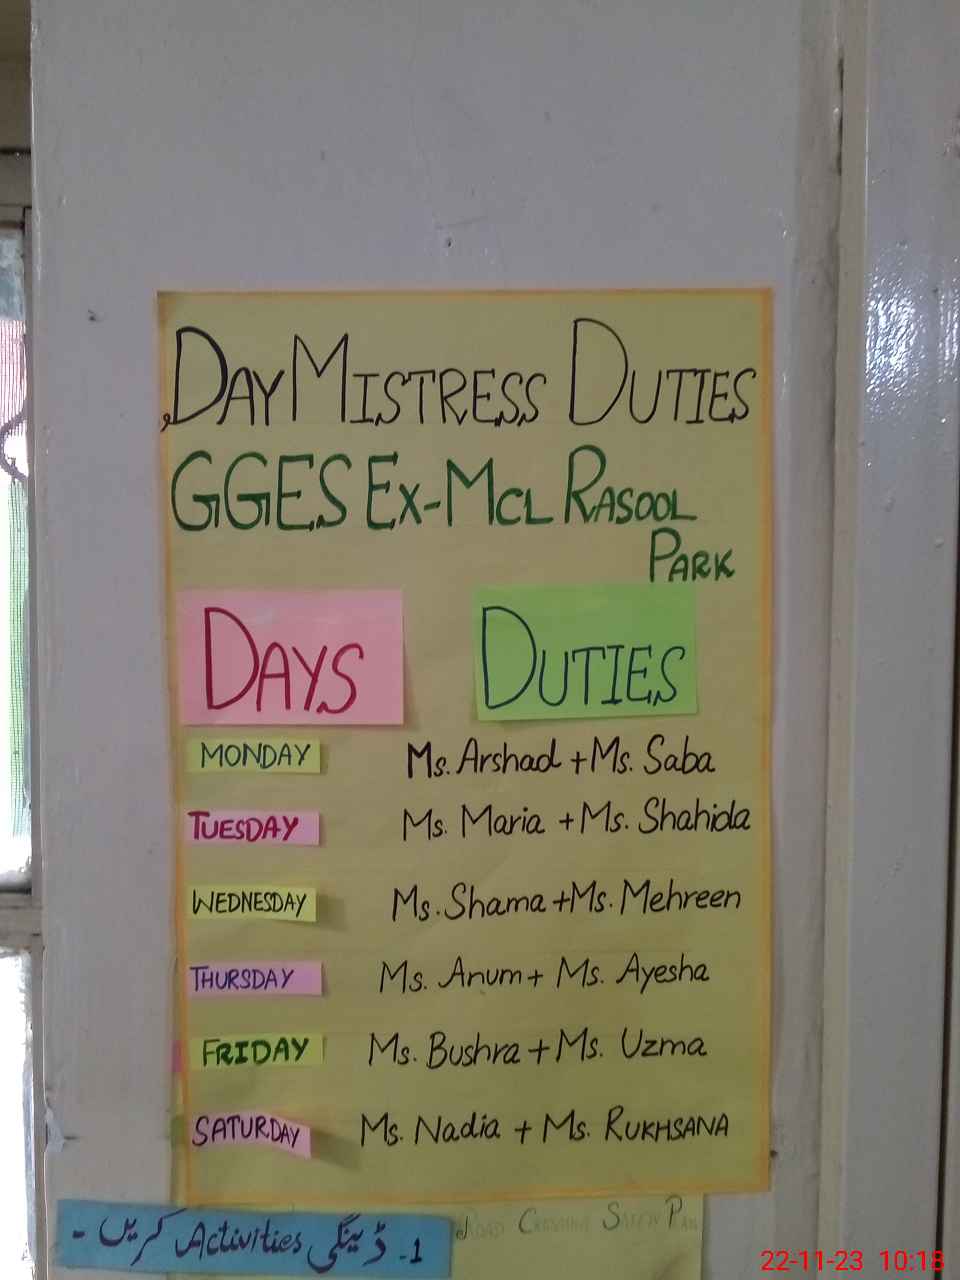 DAY MISTRESS DUTIES
GGES EX-MCL RASOOL
PARK
DAYS DUTIES
MONDAY Ms. Arshad + Ms. Saba
TUESDAY Ms. Maria + Ms. Shahida
WEDNESDAY Ms. Shama + Ms. Mehreen
THURSDAY Ms. Anum + Ms. Ayesha
FRIDAY Ms. Bushra + Ms. Uzma
SATURDAY Ms. Nadia + Ms. RUKHSANA
ROAD CROSSING SAFETY PLAN
1- ڈینگی Activities کریں -
22-11-23 10:18